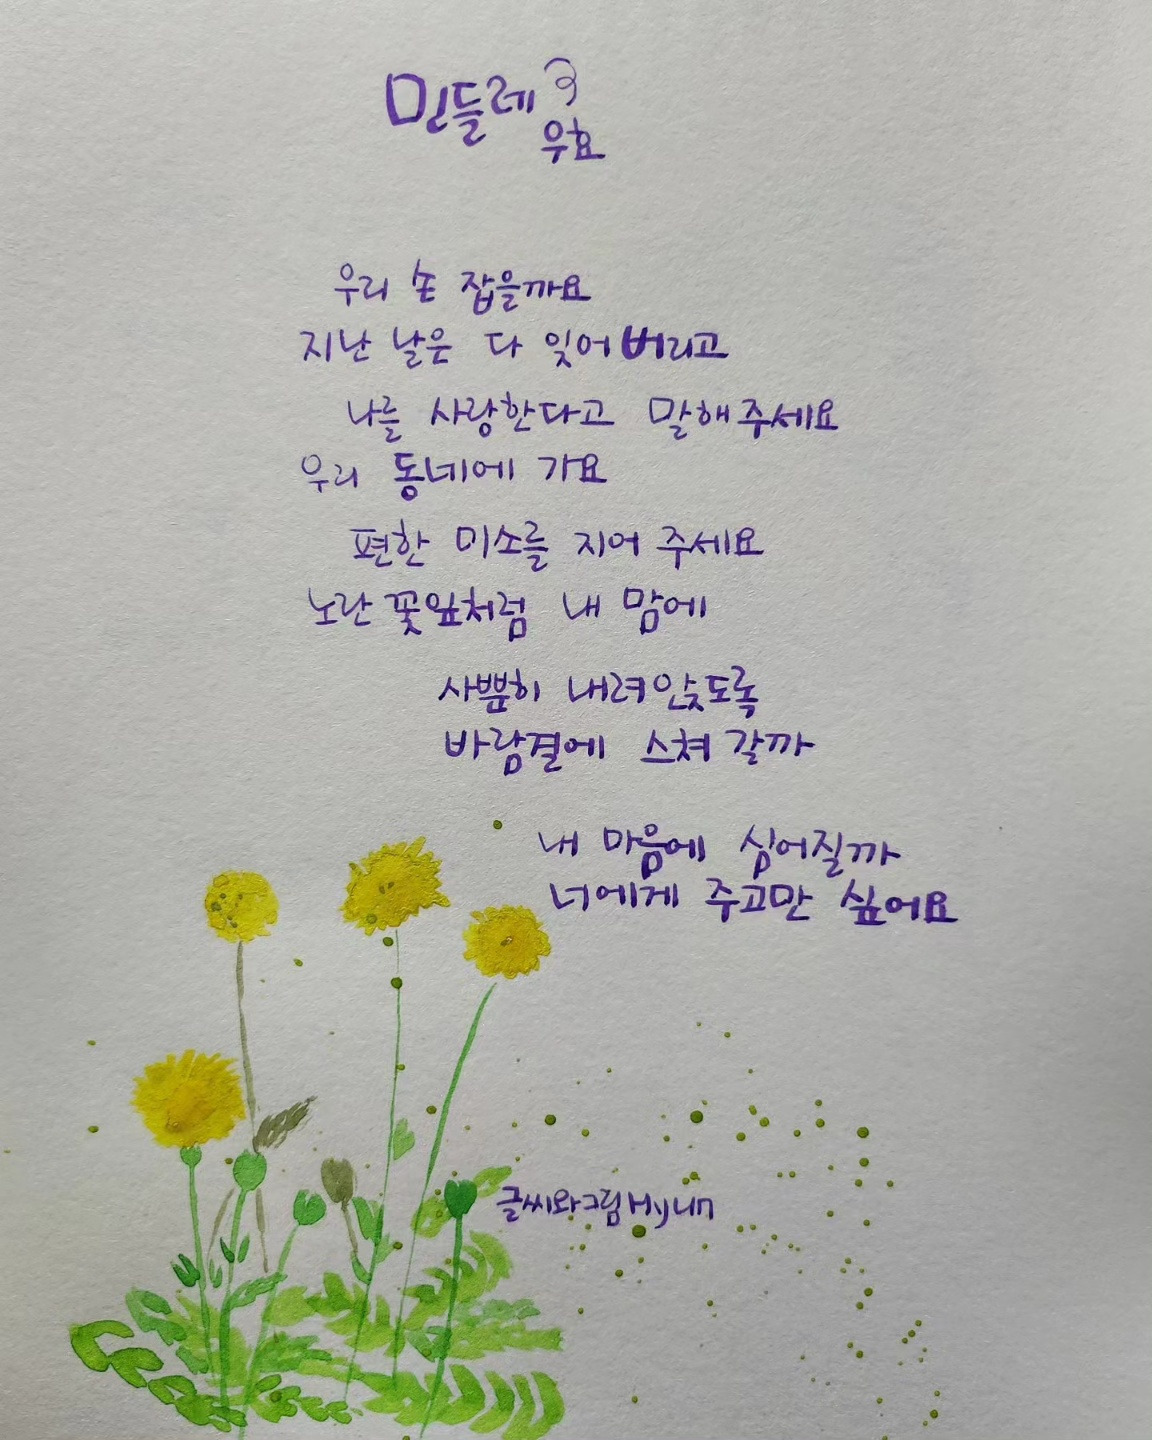 민들레
우효
우리 손 잡을까요
지난 날은 다 잊어버리고
나를 사랑한다고 말해주세요
우리 동네에 가요
편한 미소를 지어 주세요
노란 꽃잎처럼 내 맘에
사뿐히 내려앉도록
바람결에 스쳐 갈까
내 마음에 심어질까
너에게 주고만 싶어요
글씨와그림Hyun